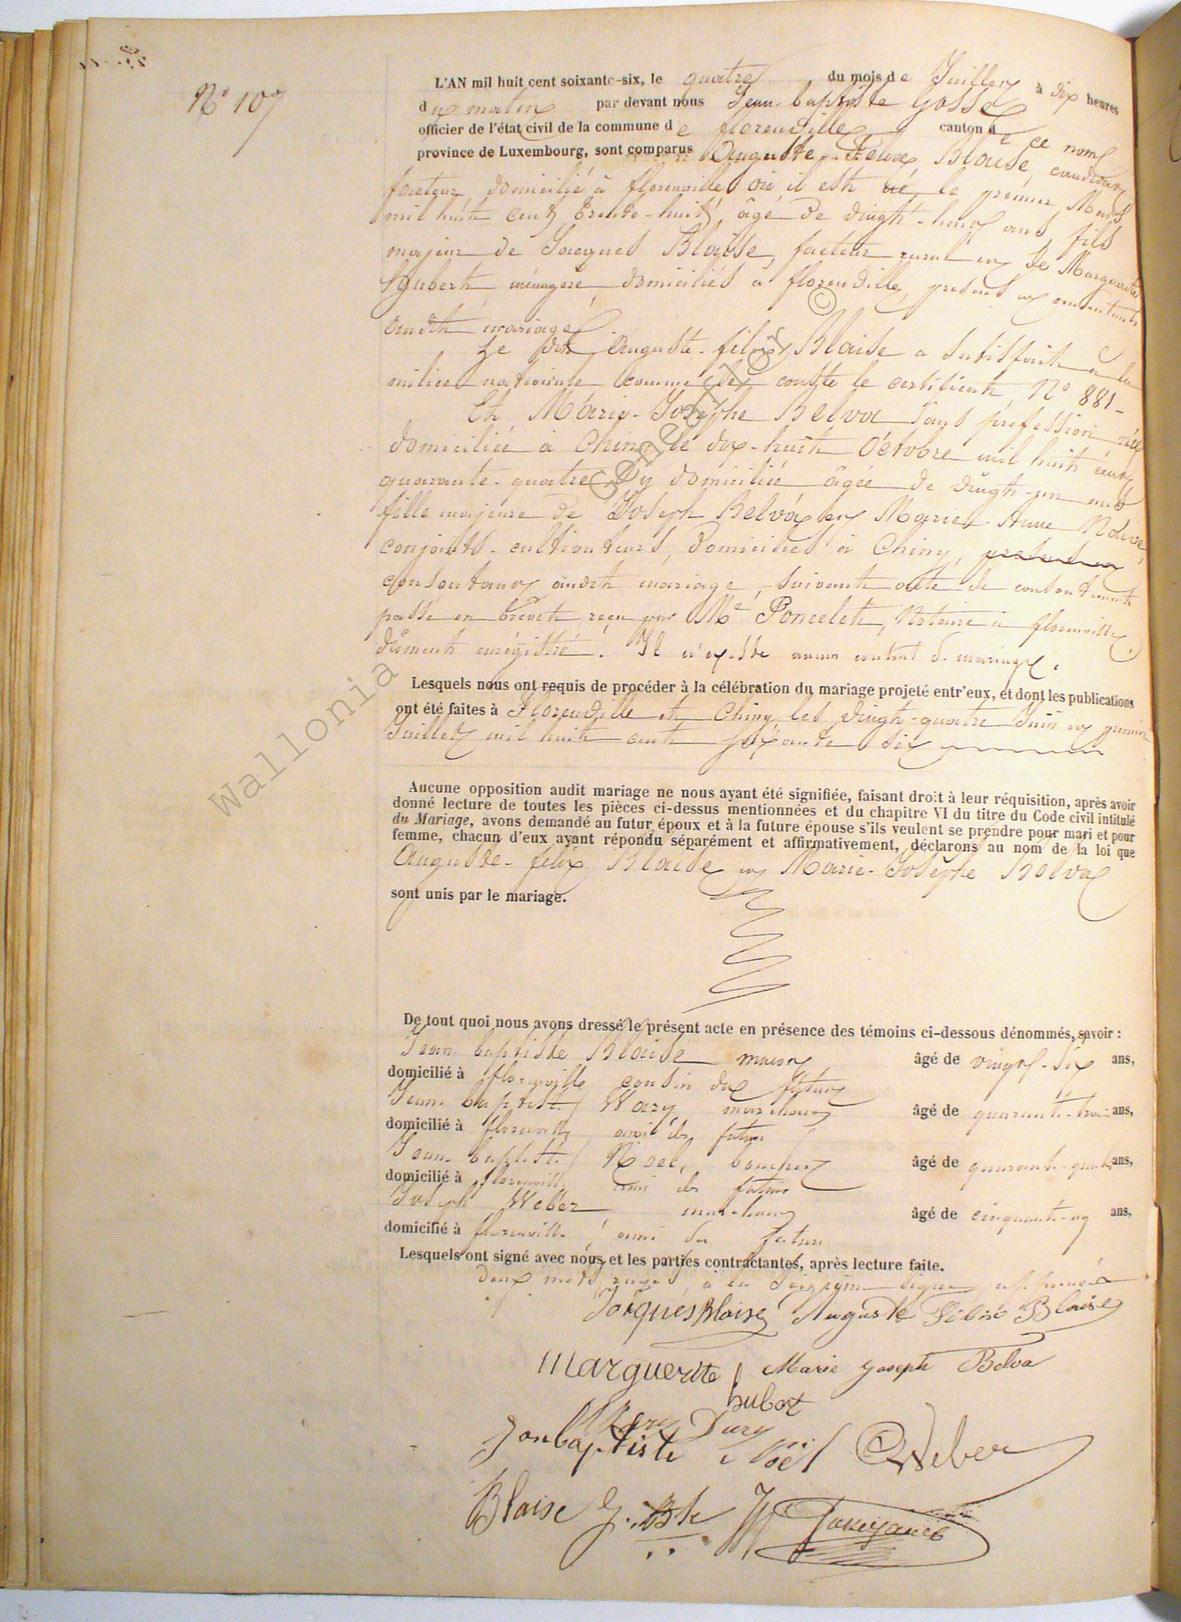 N° 107
L'AN mil huit cent soixante-six, le quatre du mois de Juillet à dix heures
du matin par devant nous Jean-baptiste Gosse
officier de l'état civil de la commune de florenville canton de ce nom
province de Luxembourg, sont comparus Auguste-Felix Blaise,
domicilié à florenville où il est né, le premier Mars
mil huit cent trente-huit, âgé de vingt-huit ans, fils
majeur de Jacques Blaise, facteur rural et de Marguerite
Hubert, ménagère, domiciliés à florenville, présents et consentants
audit mariage
Le dit Auguste-felix Blaise a satisfait à la
milice nationale comme le constte le certificat N° 881-
Et Marie-Josephe Belva sans profession née
domiciliée à Chiny le dix-huit Octobre mil huit cent
quarante-quatre, y domiciliée âgée de vingt-un ans
fille majeure de Joseph Belva et Marie-Anne
conjoints-cultivateurs, domiciliés à Chiny,
consentant audit mariage, suivant acte de consentement
passé en brevet, reçu par Me Poncelet, Notaire à florenville
dûment enrégistré. Il n'existe aucun contrat de mariage.
Lesquels nous ont requis de procéder à la célébration du mariage projeté entr'eux, et dont les publications
ont été faites à Florenville et Chiny les vingt-quatre Juin et premier
Juillet mil huit cent soixante six
Aucune opposition audit mariage ne nous ayant été signifiée, faisant droit à leur réquisition, après avoir
donné lecture de toutes les pièces ci-dessus mentionnées et du chapitre VI du titre du Code civil intitulé
du Mariage, avons demandé au futur époux et à la future épouse s'ils veulent se prendre pour mari et pour
femme, chacun d'eux ayant répondu séparément et affirmativement, déclarons au nom de la loi que
Auguste-felix Blaise et Marie-Josephe Belva
sont unis par le mariage.
De tout quoi nous avons dressé le présent acte en présence des témoins ci-dessous dénommés, savoir :
Jean-baptiste Blaise maçon âgé de vingt-six ans,
domicilié à florenville cousin du futur
Jean-baptiste Wary marchand âgé de quarante-trois ans,
domicilié à florenville ami du futur
Jean-baptiste Noel, boucher âgé de quarante-quatre ans,
domicilié à florenville ami du futur
Joseph Weber marchand âgé de cinquante-un ans,
domicilié à florenville, ami du futur
Lesquels ont signé avec nous et les parties contractantes, après lecture faite.
deux mots rayés à la seizième ligne approuvés
Jacques Blaise Auguste Félix Blaise
Marguerite hubert Marie Joseph Belva
Jean baptiste Noël Weber
Blaise J. Bte
Wallonia Genealogy ©